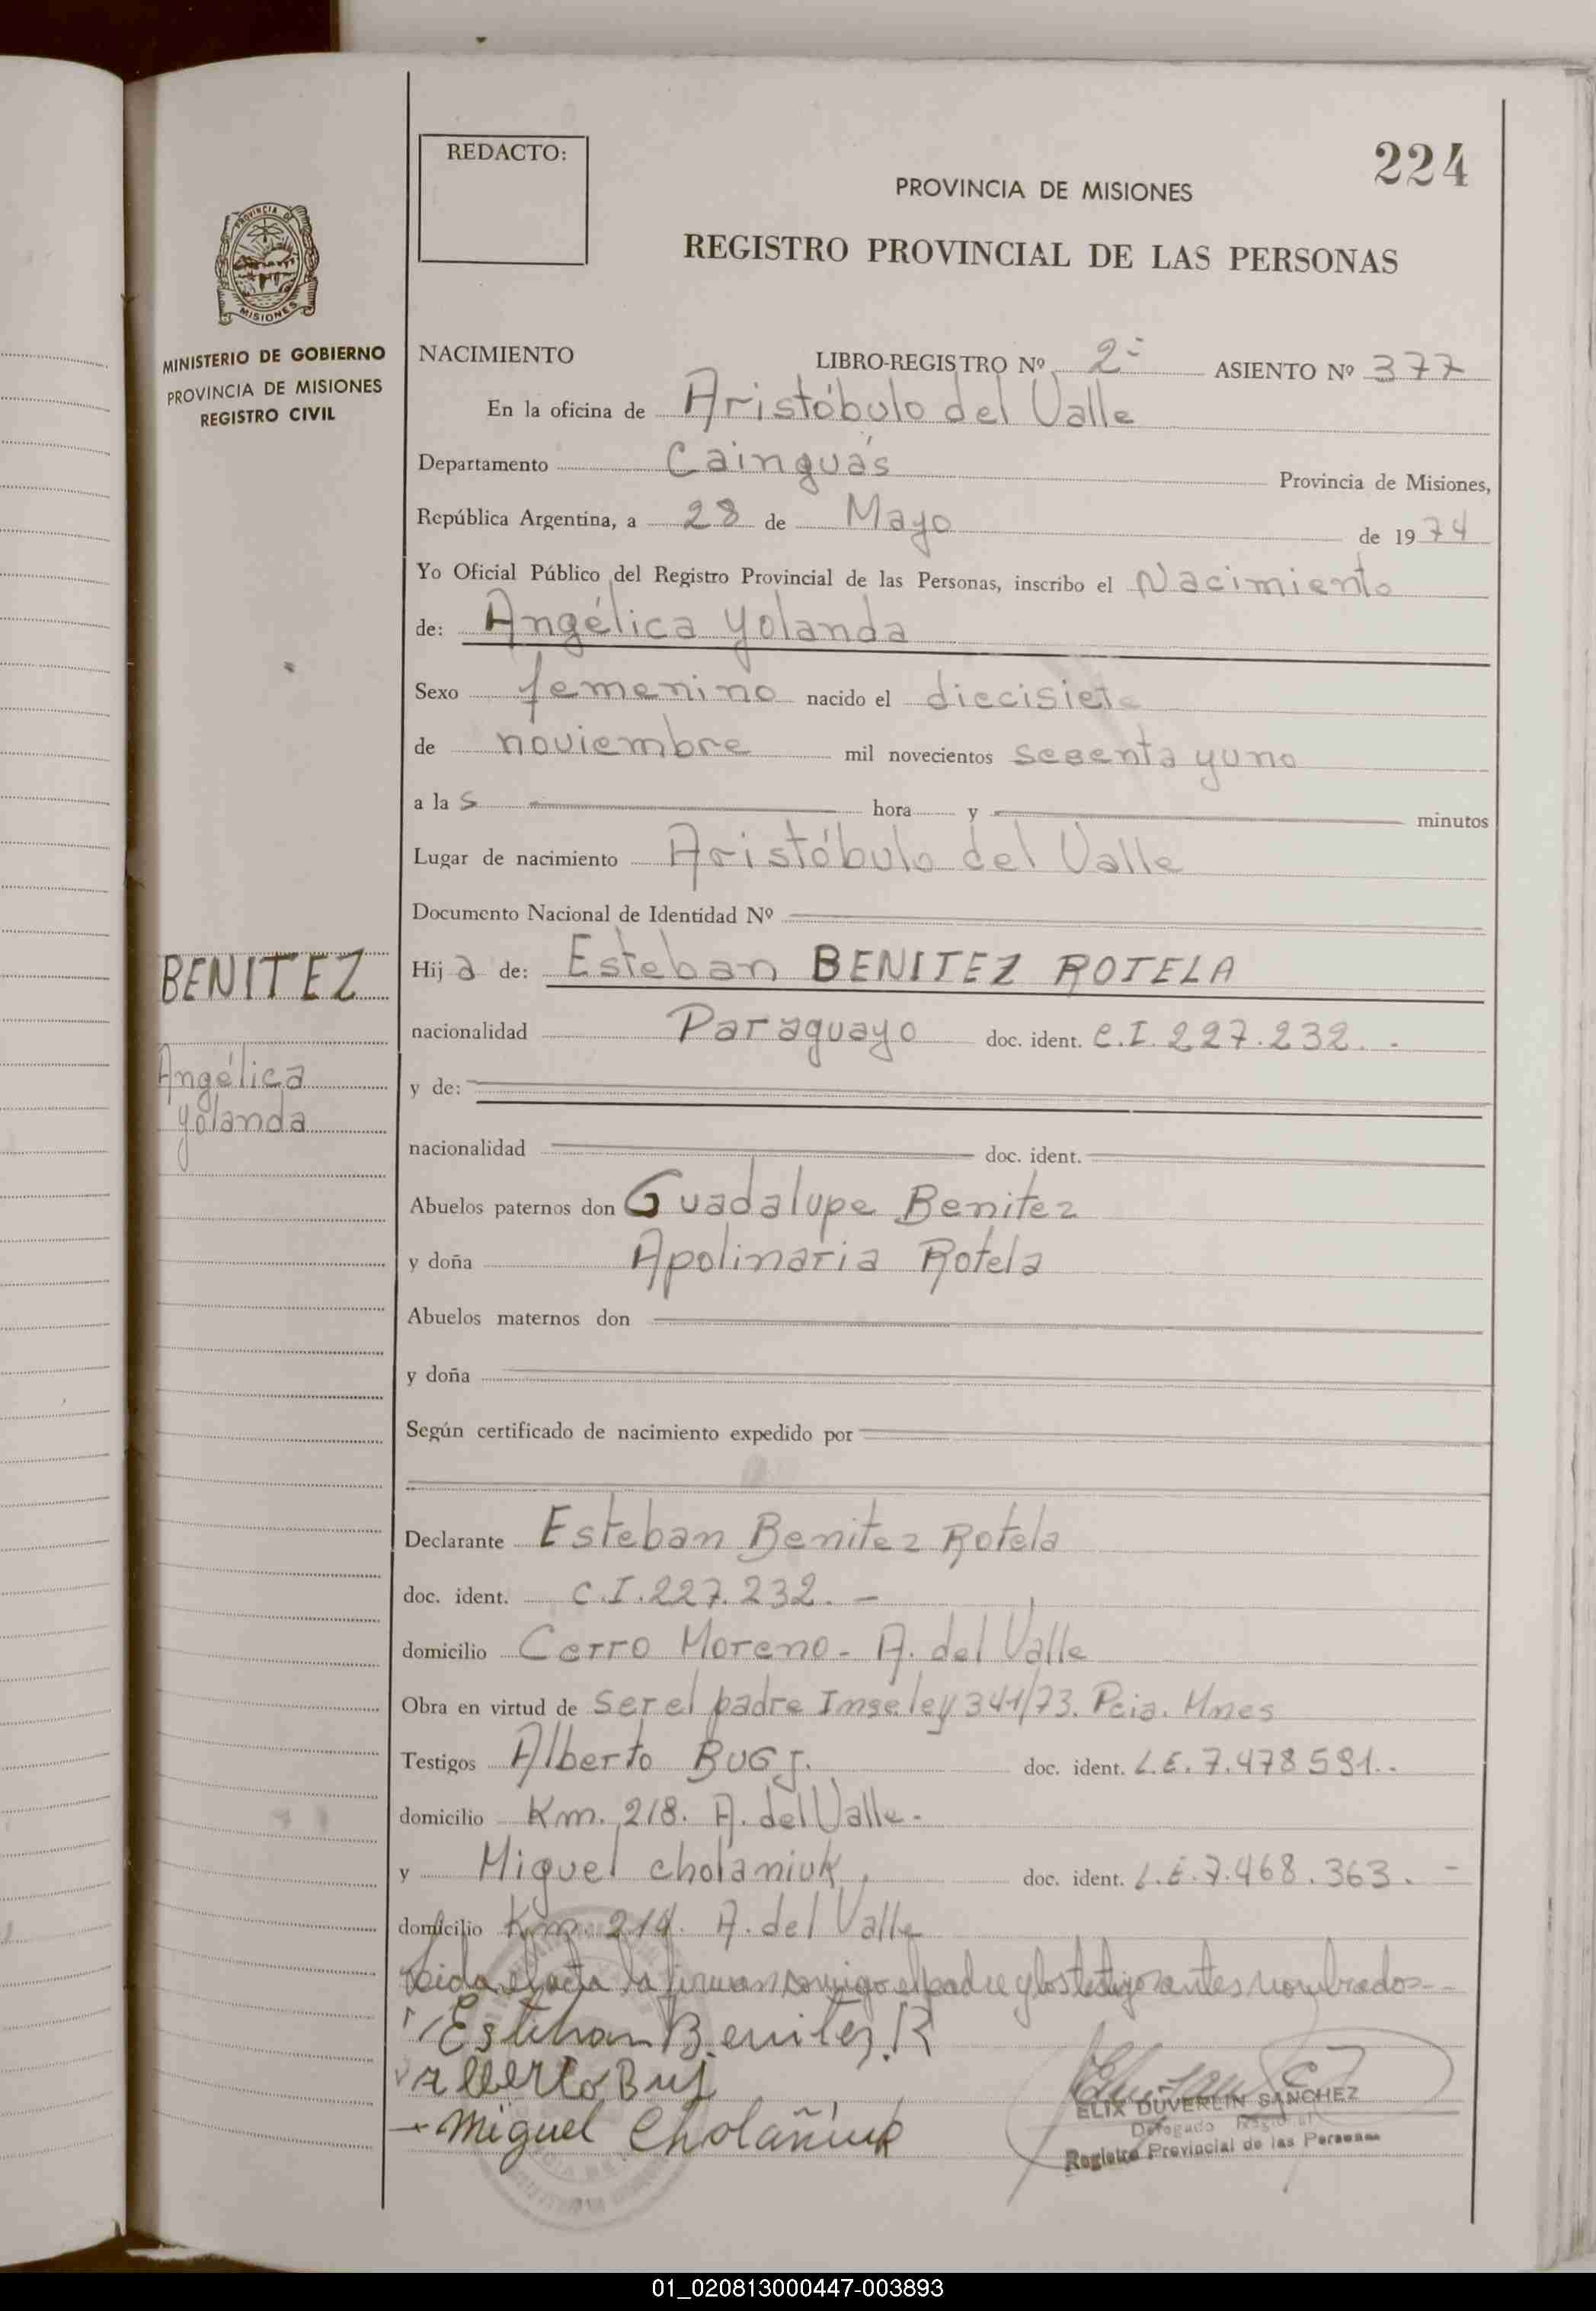 224
REDACTO:
PROVINCIA DE MISIONES
REGISTRO PROVINCIAL DE LAS PERSONAS
PROVINCIA DE
MISIONES
MINISTERIO DE GOBIERNO
PROVINCIA DE MISIONES
REGISTRO CIVIL
NACIMIENTO LIBRO-REGISTRO Nº 2º ASIENTO Nº 377
En la oficina de Aristóbulo del Valle
Departamento Cainguás Provincia de Misiones,
República Argentina, a 28 de Mayo de 1974
Yo Oficial Público del Registro Provincial de las Personas, inscribo el Nacimiento
de: Angélica Yolanda
Sexo femenino nacido el diecisiete
de noviembre mil novecientos sesenta y uno
a las hora y minutos
Lugar de nacimiento Aristóbulo del Valle
Documento Nacional de Identidad Nº
BENITEZ
Angélica
Yolanda
Hija de: Esteban BENITEZ ROTELA
nacionalidad Paraguayo doc. ident. C.I. 227.232.-
y de:
nacionalidad doc. ident.
Abuelos paternos don Guadalupe Benitez
y doña Apolinaria Rotela
Abuelos maternos don
y doña
Según certificado de nacimiento expedido por
Declarante Esteban Benitez Rotela
doc. ident. C.I. 227.232.-
domicilio Cerro Moreno - A. del Valle
Obra en virtud de ser el padre Insc. ley 341/73. Pcia. Mnes
Testigos Alberto BUGS. doc. ident. L.E. 7.478.591.-
domicilio Km. 218. A. del Valle.-
y Miguel Cholaniuk, doc. ident. L.E. 7.468.363.-
domicilio Km. 214. A. del Valle
Leida el acta la firman conmigo el padre y los testigos antes nombrados--
Esteban Benitez.R
Alberto Bug
Miguel Cholañiuk
ELIX DUVERLIN SANCHEZ
Delegado Regional
Registro Provincial de las Personas
01_020813000447-003893